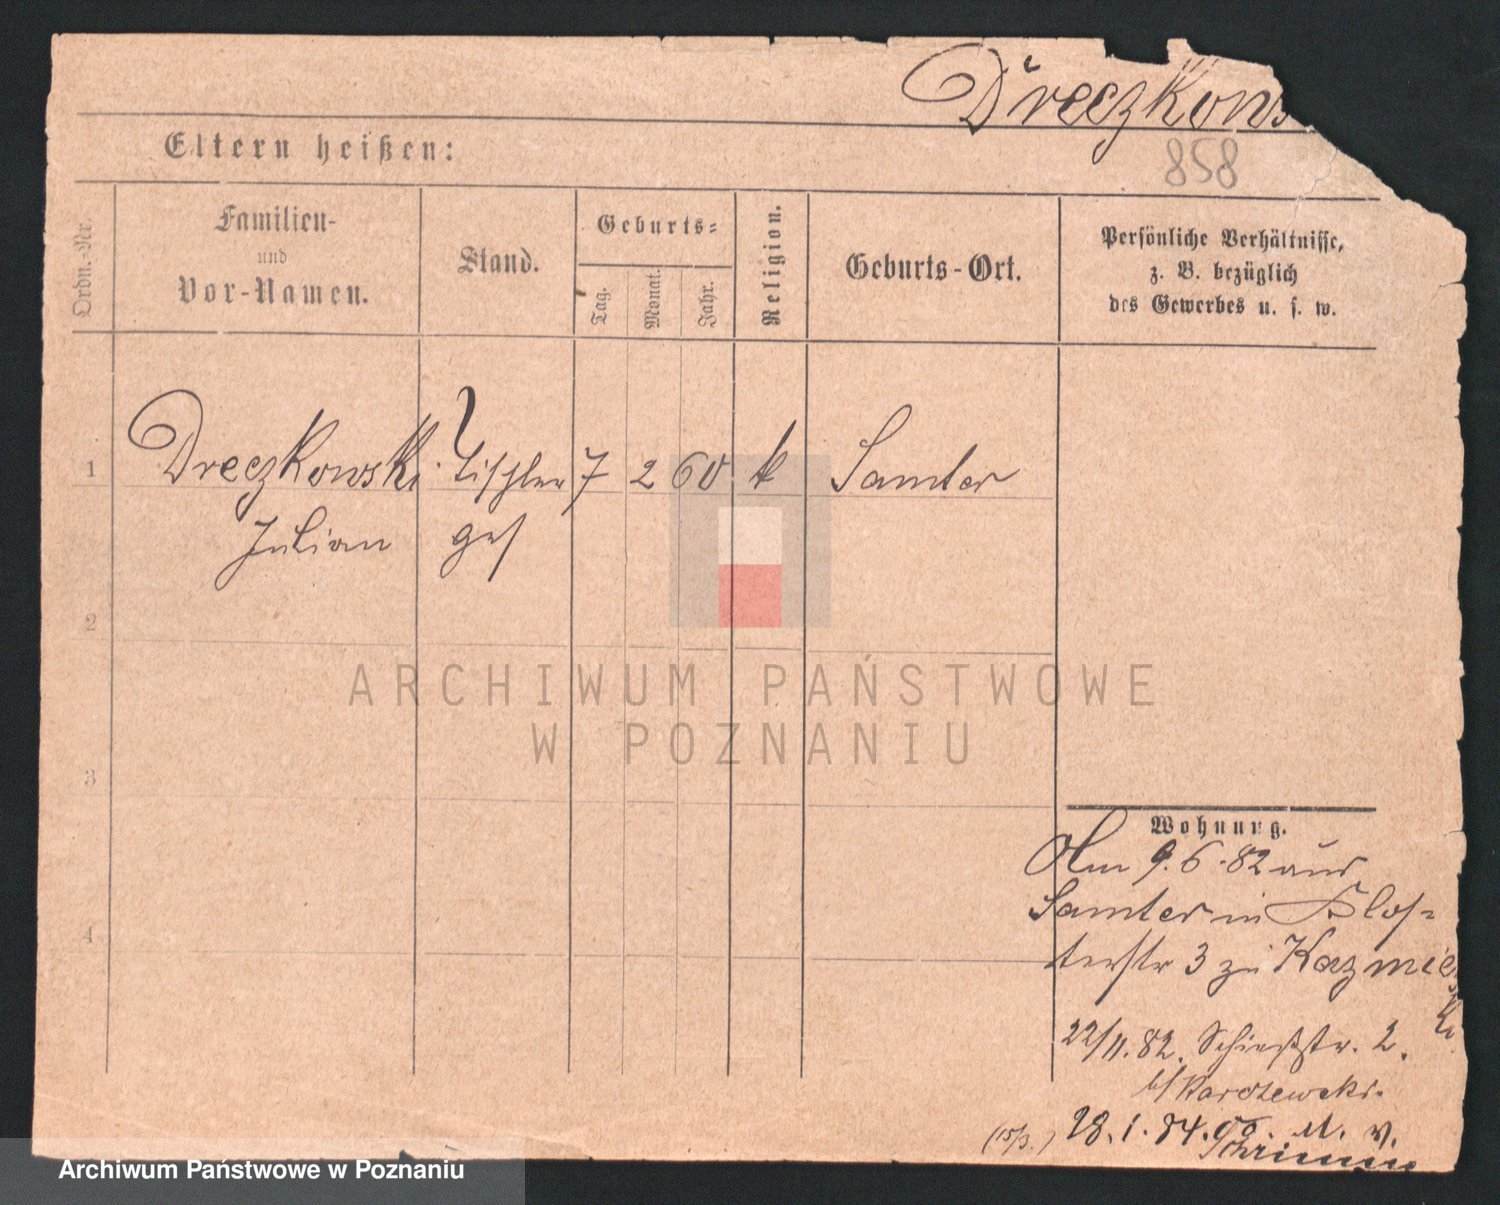 Dreczkows
858
Eltern heißen:
Ordn.-Nr.
Familien-
und
Vor-Namen.
Stand.
Geburts-
Tag.
Monat.
Jahr.
Religion.
Geburts-Ort.
Persönliche Verhältnisse,
z. B. bezüglich
des Gewerbes u. s. w.
1
Dreczkowski Tischler 7 2 60 k Samter
Julian ges
2
3
4
ARCHIWUM PAŃSTWOWE
W POZNANIU
Wohnung.
Am 9.6.82 aus
Samter in Klos-
terstr 3 zu Kazmier
ki
22/11.82. Schießstr. 2.
b/
(15/3.) 28.1.84. M. v.
Schrimm
Archiwum Państwowe w Poznaniu